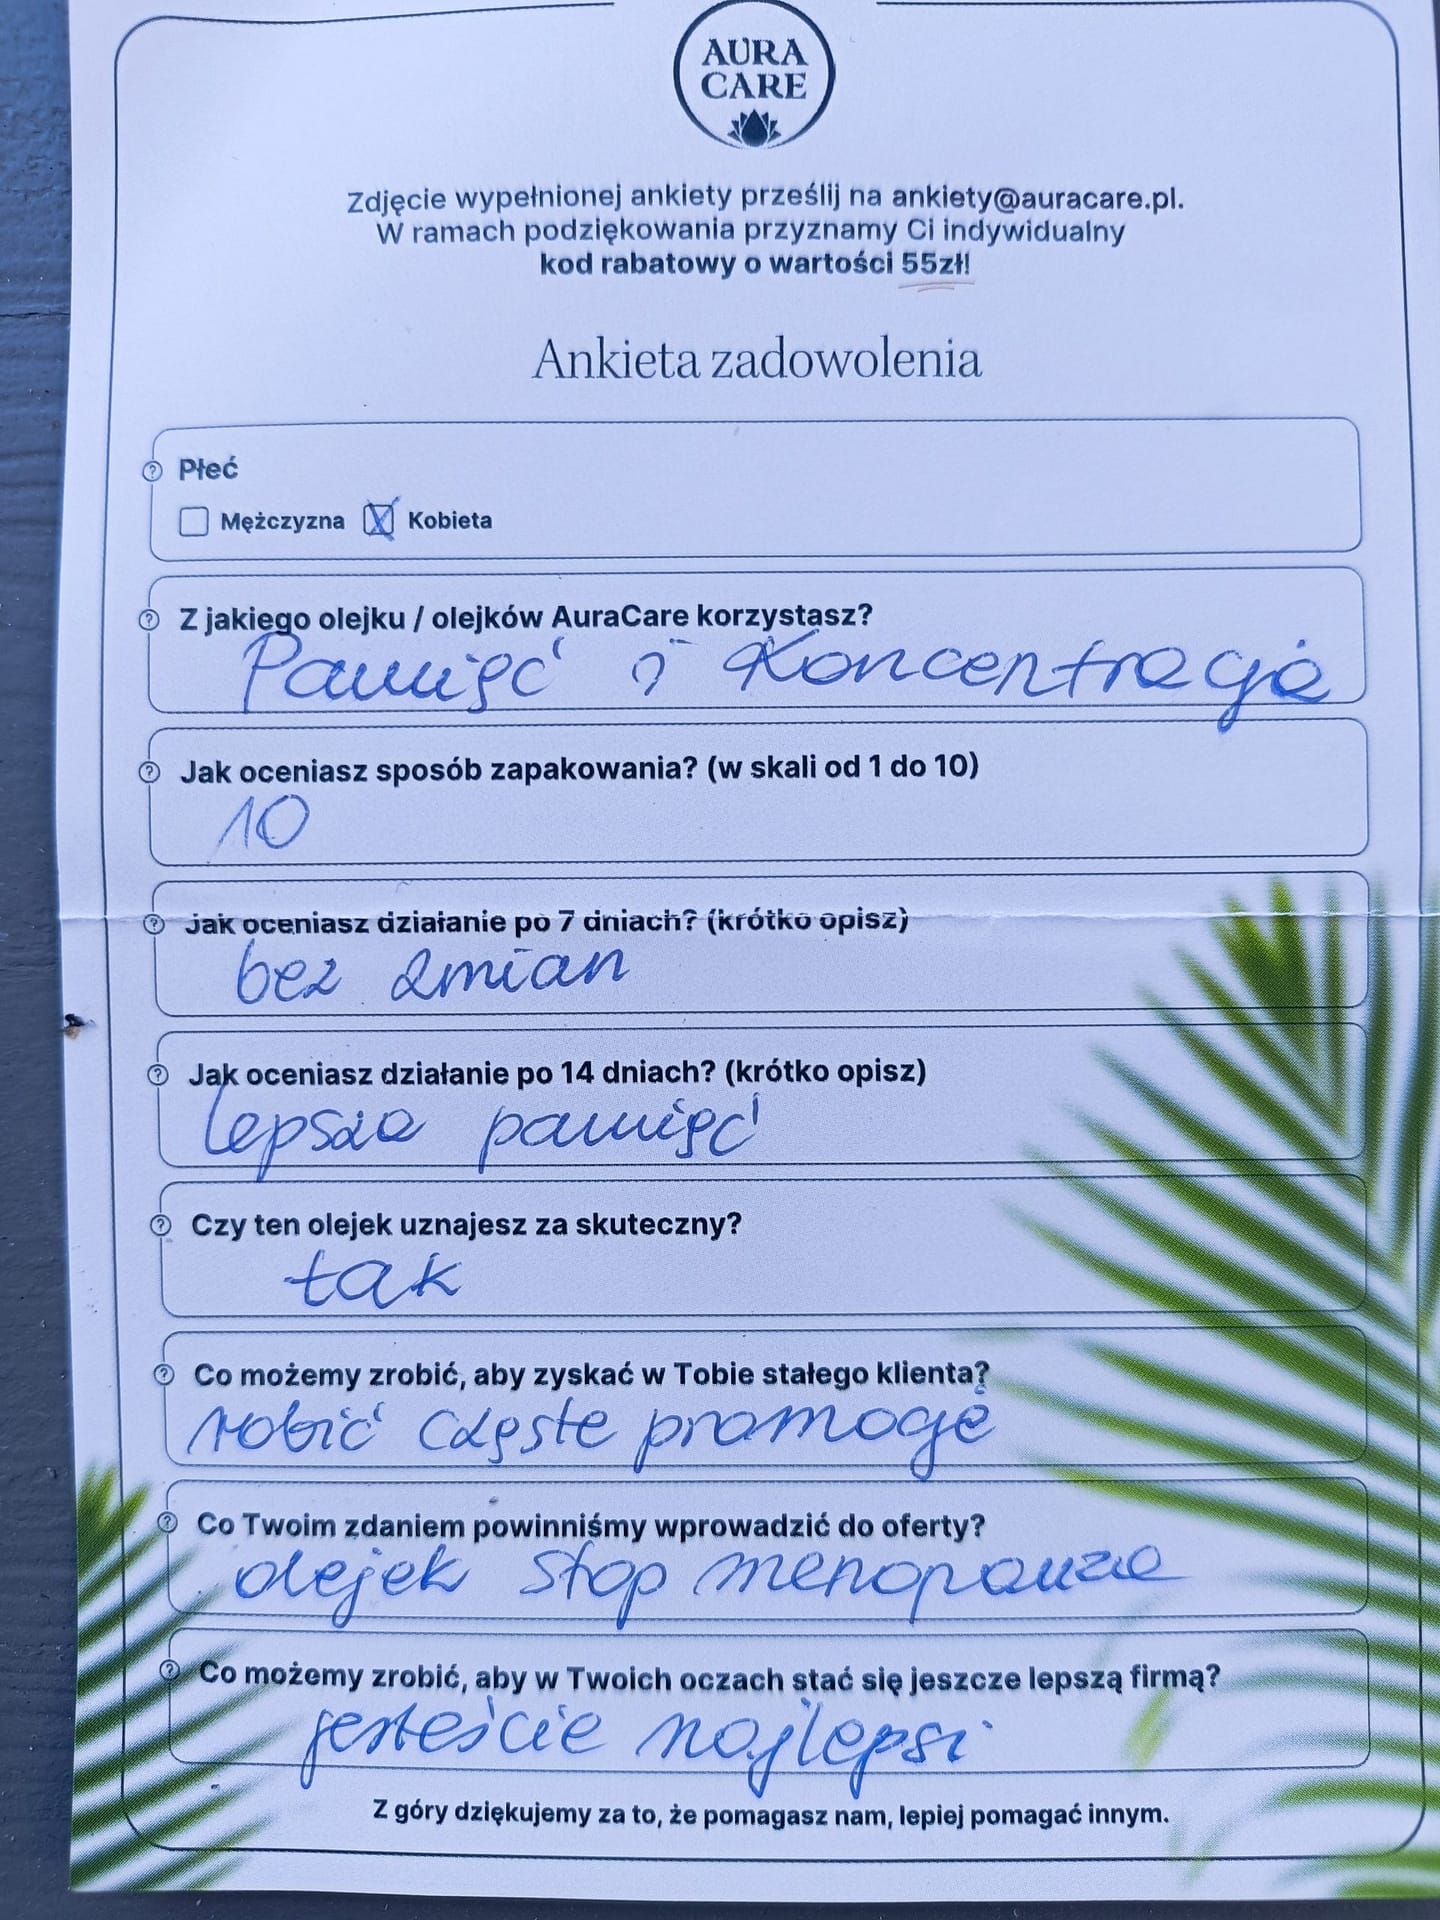 AURA
CARE
Zdjęcie wypełnionej ankiety prześlij na ankiety@auracare.pl.
W ramach podziękowania przyznamy Ci indywidualny
kod rabatowy o wartości 55zł!
Ankieta zadowolenia
Płeć
Mężczyzna Kobieta
Z jakiego olejku / olejków AuraCare korzystasz?
Pamięć i Koncentracja
Jak oceniasz sposób zapakowania? (w skali od 1 do 10)
10
Jak oceniasz działanie po 7 dniach? (krótko opisz)
bez zmian
Jak oceniasz działanie po 14 dniach? (krótko opisz)
lepsza pamięć
Czy ten olejek uznajesz za skuteczny?
tak
Co możemy zrobić, aby zyskać w Tobie stałego klienta?
robić częste promocje
Co Twoim zdaniem powinniśmy wprowadzić do oferty?
olejek stop menopauza
Co możemy zrobić, aby w Twoich oczach stać się jeszcze lepszą firmą?
jesteście najlepsi
Z góry dziękujemy za to, że pomagasz nam, lepiej pomagać innym.